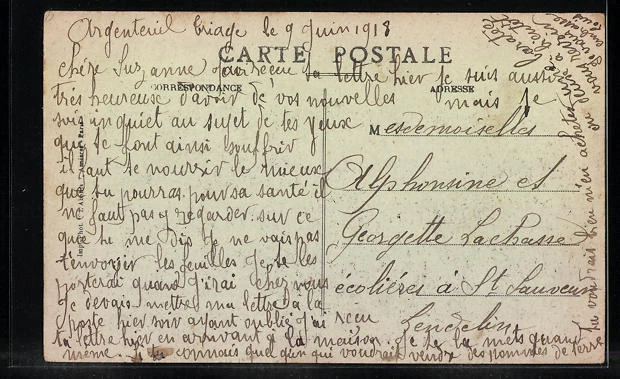 Argenteuil triage le 9 juin 1918
CARTE POSTALE
Chère Suzanne j'ai recu ta lettre hier je suis aussi
CORRESPONDANCE
ADRESSE
très heureuse d'avoir de vos nouvelles mais je
sui inquiet au sujet de tes yeux
qui te font ainsi souffrir
il faut se nourrir le mieux
que tu pourras pour sa santé il
ne faut pas y regarder sur ce
que tu me dis je ne vais pas
t'envoyer les feuilles je te les
porterai quand j'irai chez vous
Je devais mettre ma lettre à la
poste hier soir ayant oublié j'ai recu
ta lettre hier en arrivant à la maison. Je te la mets quand
même. si tu connais quelqu'un qui voudrait vendre des pommes de terre
tu voudrais bien m'en acheter
Mesdemoiselles
Alphonsine et
Georgette Lachasse
écolières à St Sauveur
Lendelin
Imp. Phot. A. Paris